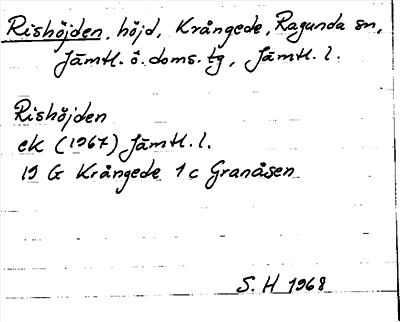 Rishöjden, höjd, Krångede, Ragunda sn,
Jämtl. ö. doms. tg, Jämtl. l.
Rishöjden
ek (1967) Jämtl. l.
19 G Krångede 1 c Granåsen
S. H 1968